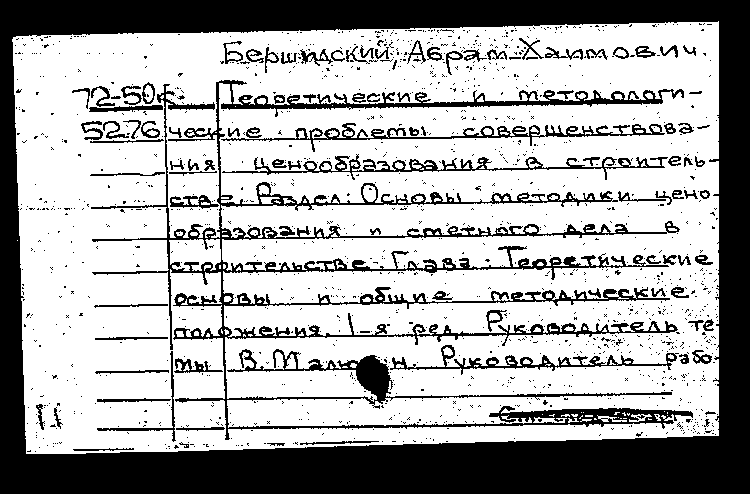 Бершидский, Абрам Хаимович.
72-50к Теоретические и методологи-
5276 ческие проблемы совершенствова-
ния ценообразования в строитель-
стве. Раздел: Основы методики цено-
образования и сметного дела в
строительстве. Глава: Теоретические
основы и общие методические
положения. 1-я ред. Руководитель те-
мы В. Руководитель рабо-
См. след. кар.